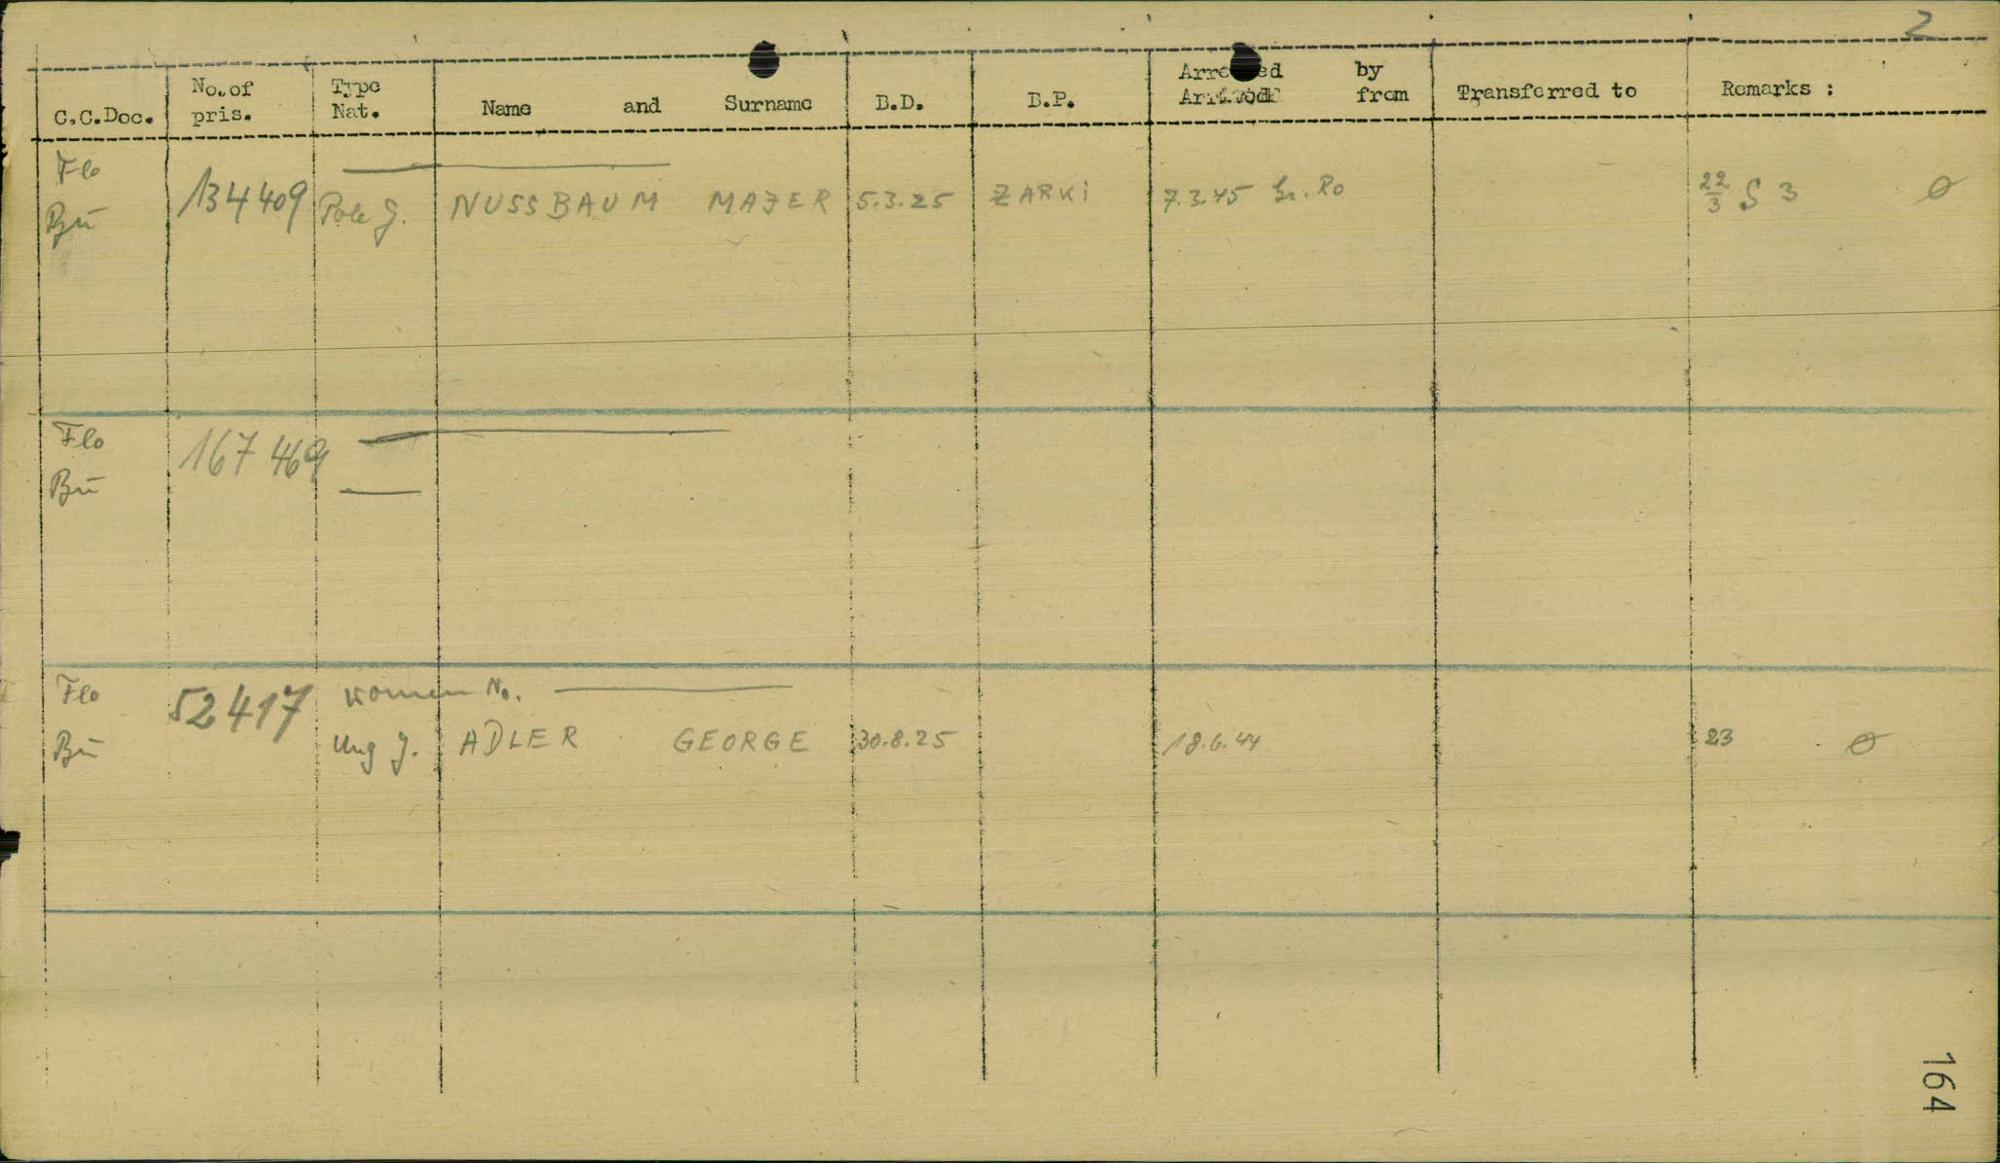 2
C.C.Doc. No.of pris. Type Nat. Name and Surname B.D. B.P. Arrested by Arrived from Transferred to Remarks :
Flo
Bu 134409 Pole J. NUSSBAUM MAJER 5.3.25 ZARKI 7.3.45 Gr. Ro 22/3 S 3
Flo 167 469
Bu
Flo 52417 women No.
Bu Ung J. ADLER GEORGE 30.8.25 18.6.44 23
164